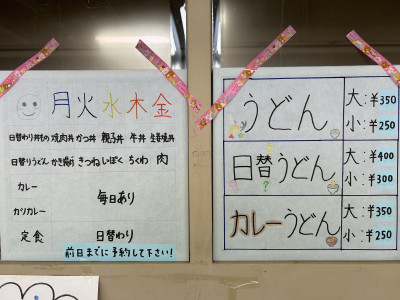 月 火 水 木 金
日替わり丼もの 焼肉丼 かつ丼 親子丼 牛丼 生姜焼丼
日替りうどん かき揚げ きつね いぼく ちくわ 肉
カレー
カツカレー
毎日あり
定食 日替わり
前日までに予約して下さい!
うどん 大:¥350
小:¥250
日替うどん 大:¥400
小:¥300
カレーうどん 大:¥350
小:¥250